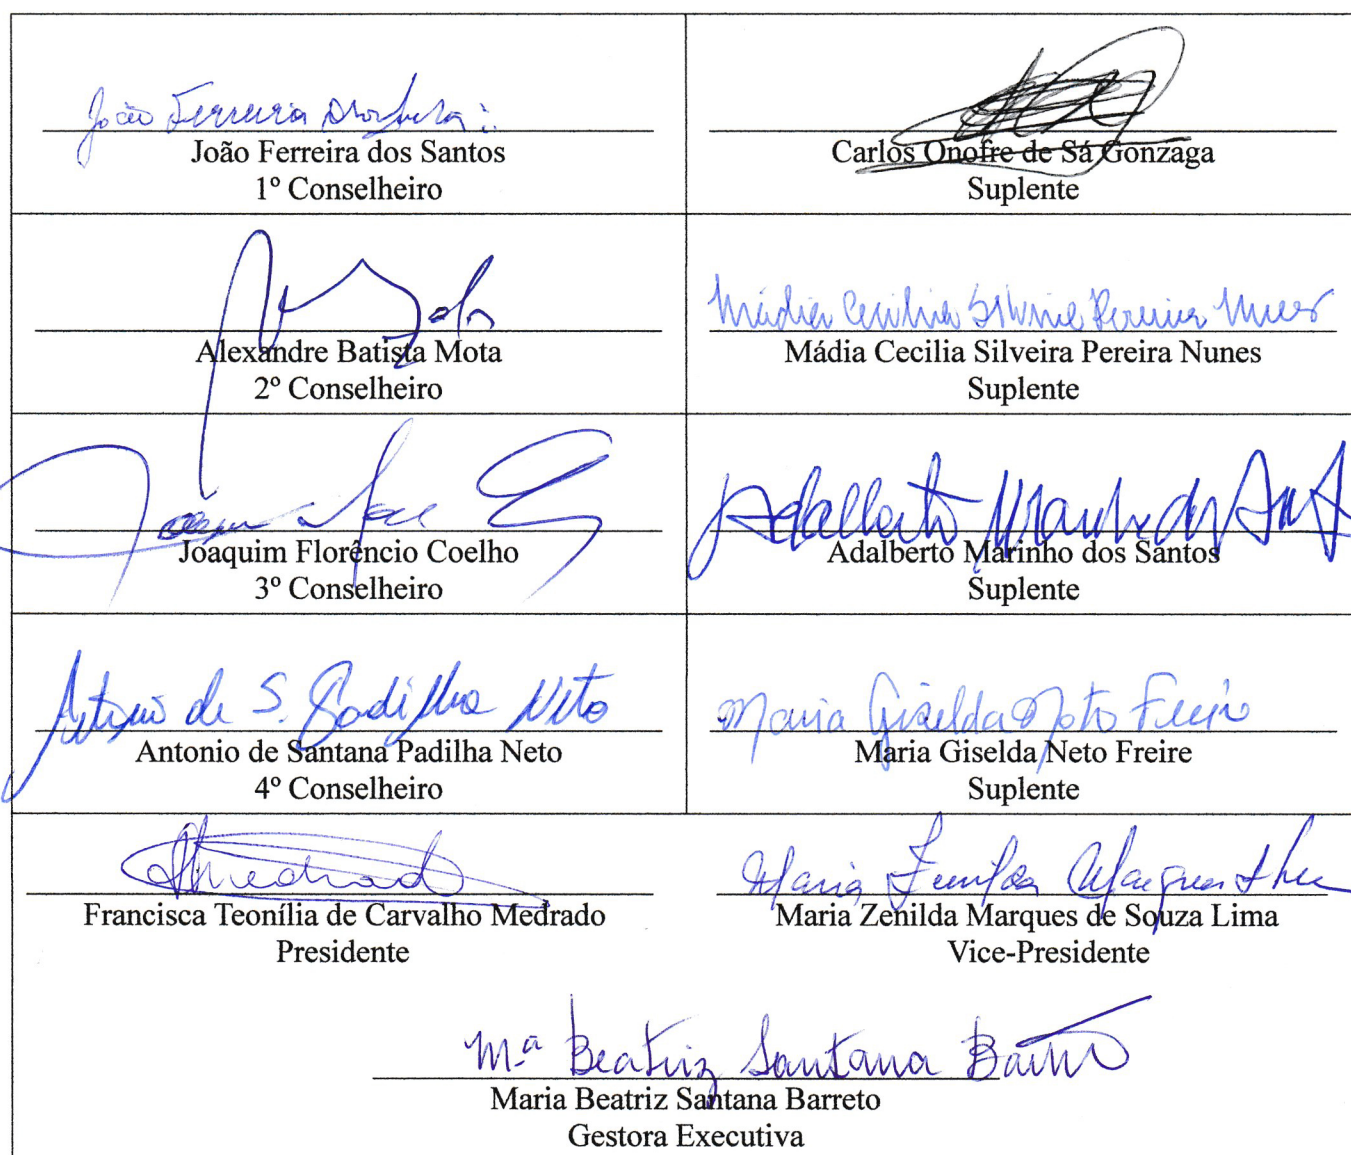 João Ferreira dos Santos
João Ferreira dos Santos
1º Conselheiro
Carlos Onofre de Sá Gonzaga
Suplente
Alexandre Batista Mota
2º Conselheiro
Mádia Cecilia Silveira Pereira Nunes
Mádia Cecilia Silveira Pereira Nunes
Suplente
Joaquim Florêncio Coelho
3º Conselheiro
Adalberto Marinho dos Sant
Adalberto Marinho dos Santos
Suplente
Antonio de S. Padilha Neto
Antonio de Santana Padilha Neto
4º Conselheiro
Maria Giselda Neto Freire
Maria Giselda Neto Freire
Suplente
Medrado
Francisca Teonília de Carvalho Medrado
Presidente
Maria Zenilda Marques
Maria Zenilda Marques de Souza Lima
Vice-Presidente
Mª Beatriz Santana Barreto
Maria Beatriz Santana Barreto
Gestora Executiva